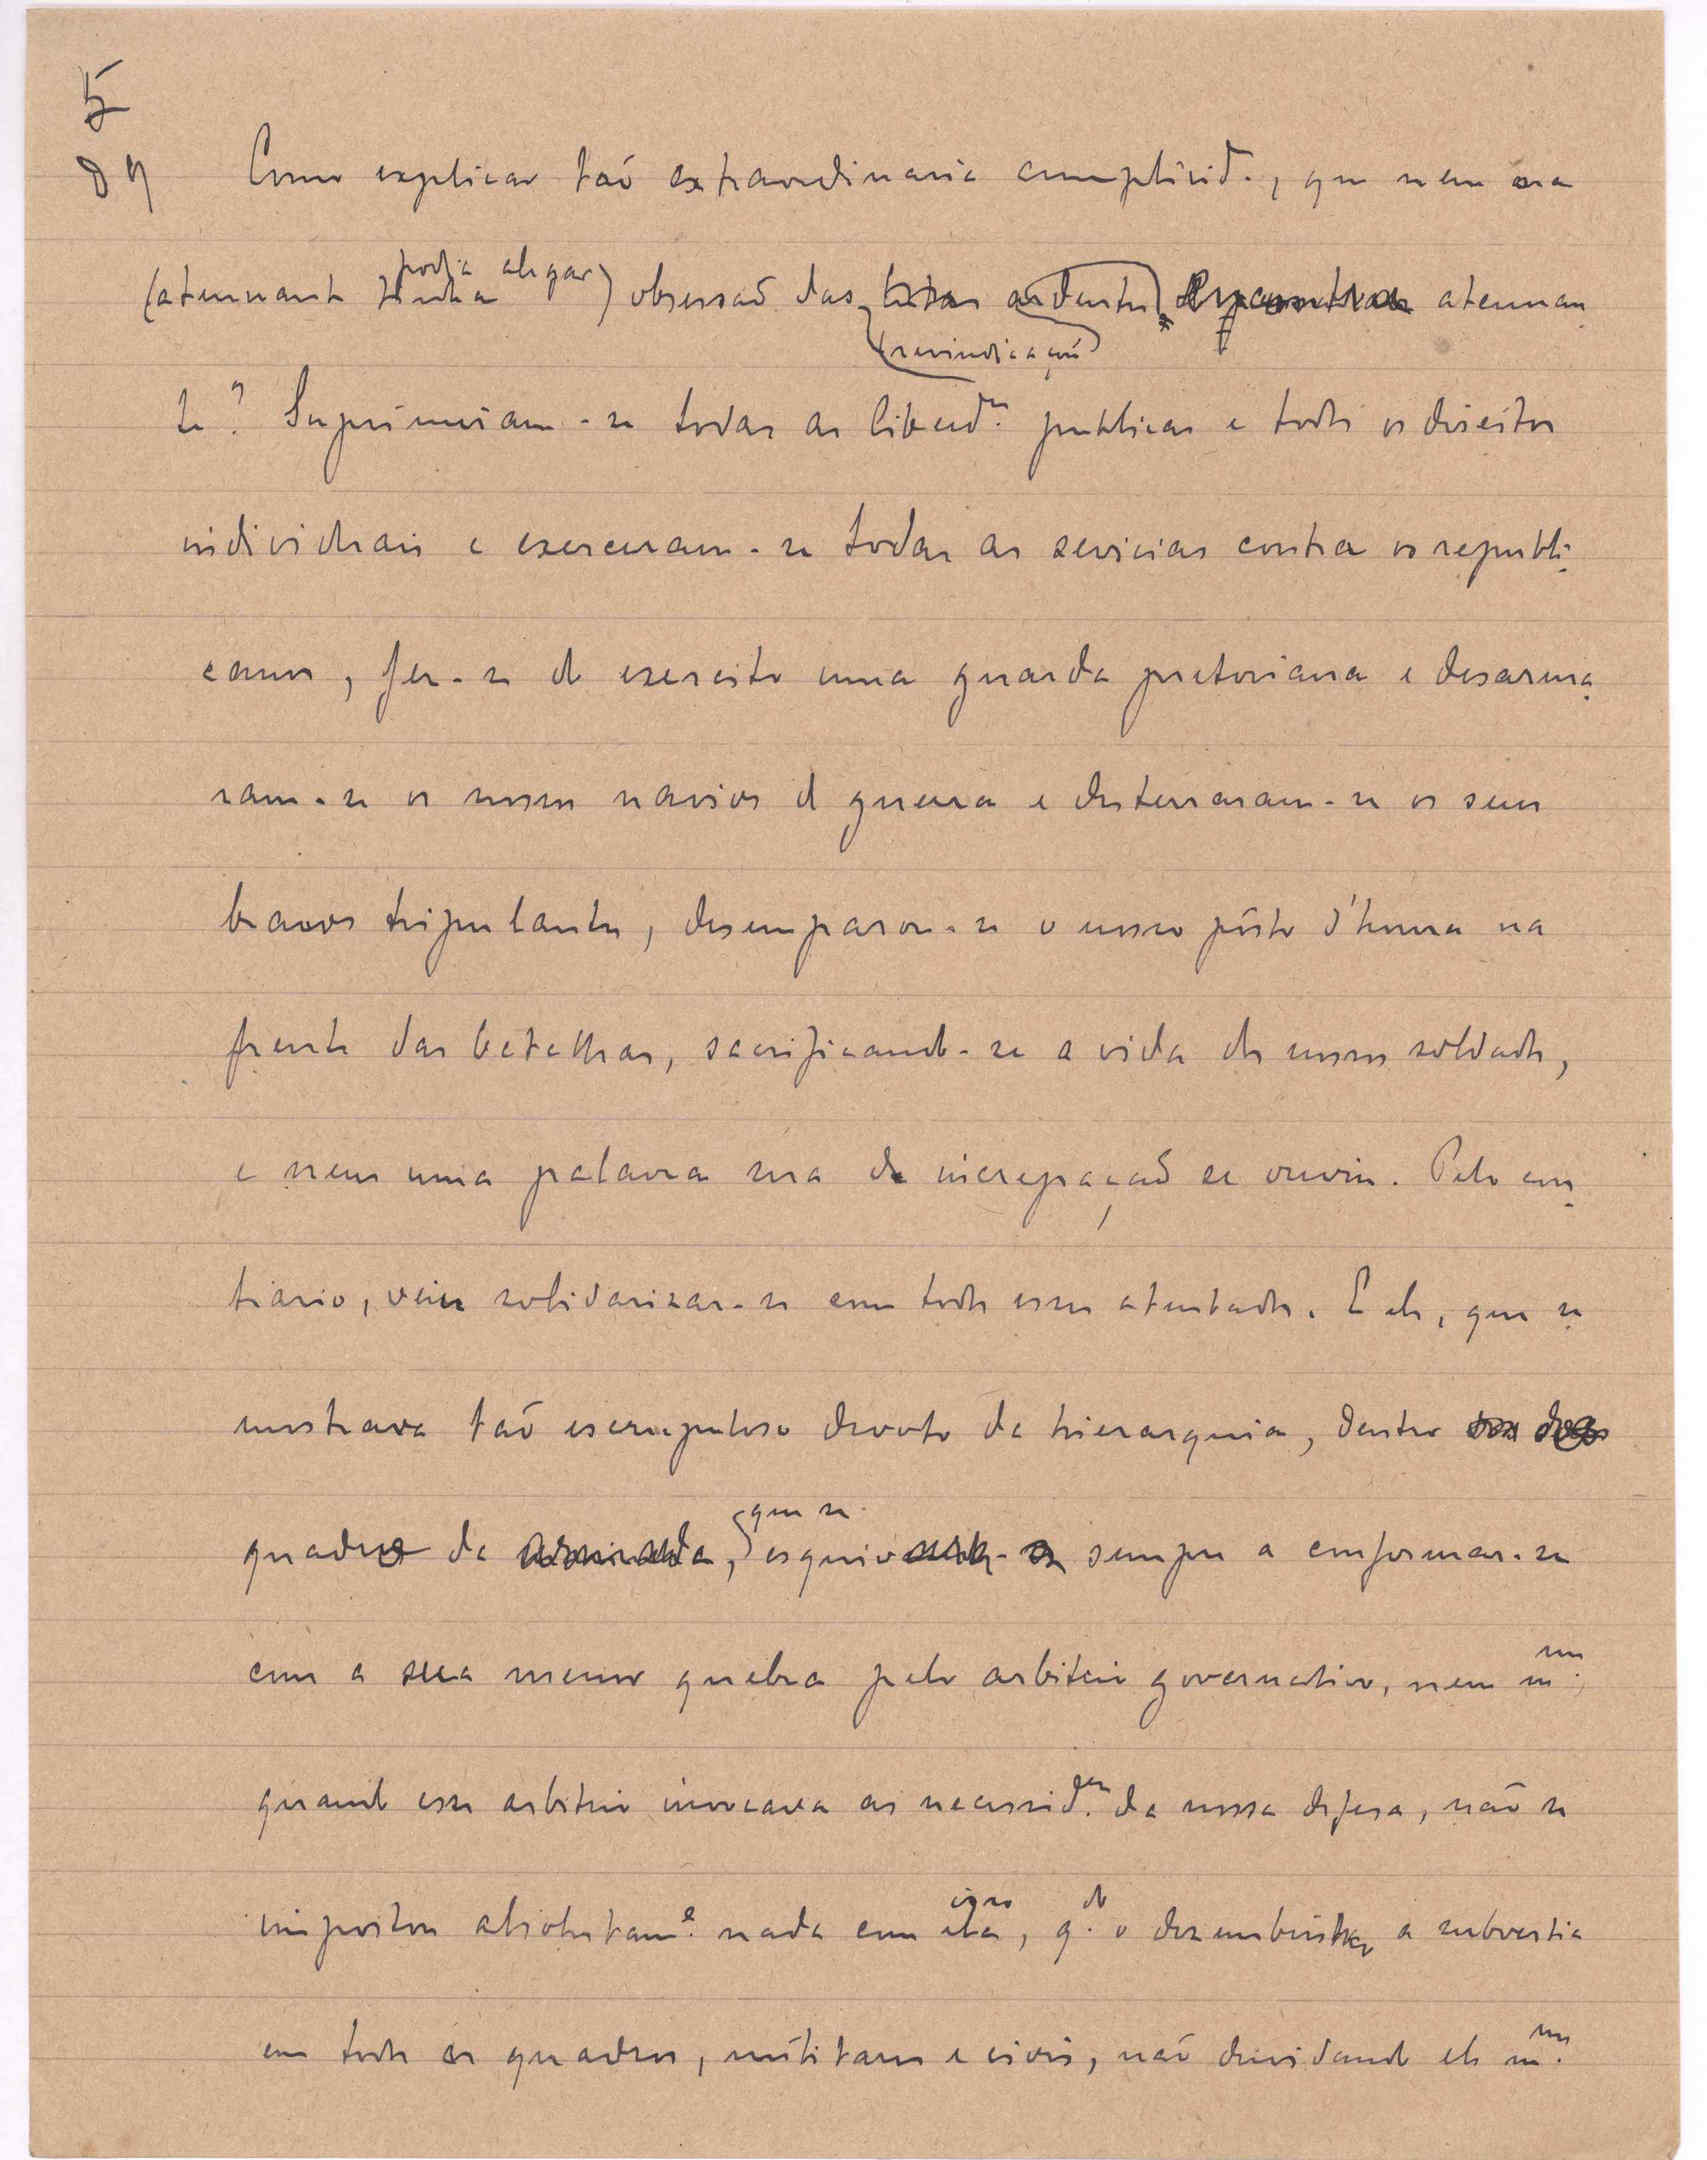 5
Como explicar taõ extraordinaria cumplicid.ᵉ, que nem na
podia alegar
(atenuante tinha) obsessaõ das lutas ardentes atenuan
(reivindicações)
te? Suprimiram-se todas as liberd.ᵉˢ publicas e todos os direitos
individuais e exerceram-se todas as sevicias contra os republi-
canos, fez-se do exercito uma guarda pretoriana e desarma-
ram-se os nossos navios de guerra e desterraram-se os seus
bravos tripulantes, desemparou-se o nosso pôsto d'honra na
frente das batalhas, sacrificando-se a vida dos nossos soldados,
e nem uma palavra sua de increpaçaõ se ouviu. Pelo con-
trario, veiu solidarizar-se com todos esses atentados. E ele, que se
mostrava taõ escrupuloso devoto da hierarquia, dentro dos
que se
quadros da armada, esquivando-se sempre a conformar-se
com a sua menor quebra pelo arbitrio governativo, nem m.ᵐᵒ
quando esse arbitrio invocava as necessid.ᵉˢ da nossa defesa, não se
isso do
importou absolutam.ᵉ nada com ela, q.do o dezembrismo a subvertia
em todos os quadros, militares e civis, naõ duvidando ele m.ᵐᵒ